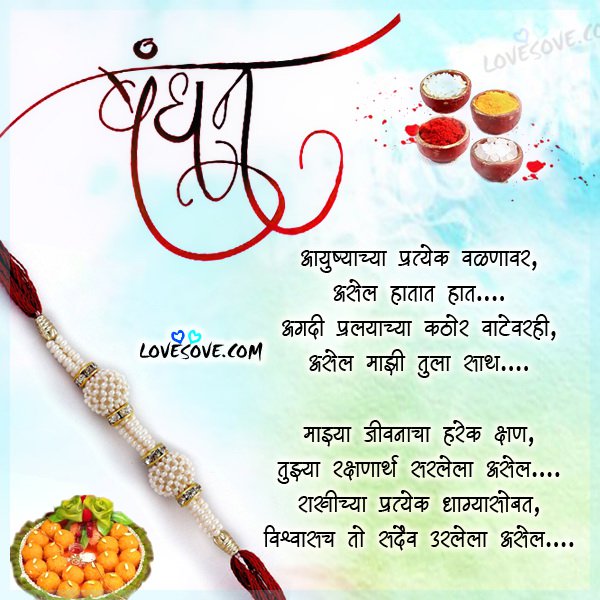 LOVESOVE.COM
बंधन
आयुष्याच्या प्रत्येक वळणावर,
असेल हातात हात....
अगदी प्रलयाच्या कठोर वाटेवरही,
असेल माझी तुला साथ....
LOVESOVE.COM
माझ्या जीवनाचा हरेक क्षण,
तुझ्या रक्षणार्थ सरलेला असेल....
राखीच्या प्रत्येक धाग्यासोबत,
विश्वासच तो सदैव उरलेला असेल....